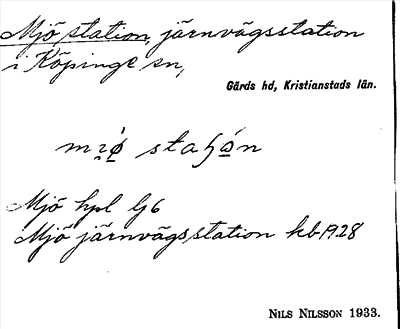 Mjö station, järnvägsstation
i Köpinge sn,
Gärds hd, Kristianstads län.
Mjö hpl lj 6
Mjö järnvägsstation kb 1928
NILS NILSSON 1933.